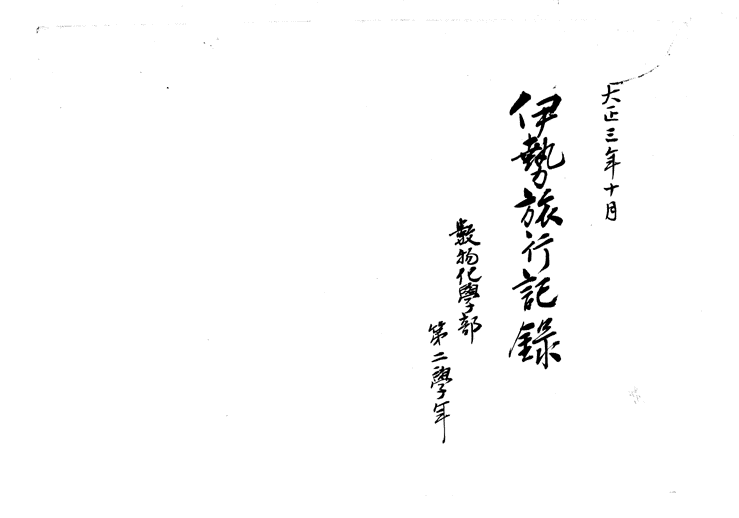 大正三年十月
伊勢旅行記録
數物化學部
第二學年